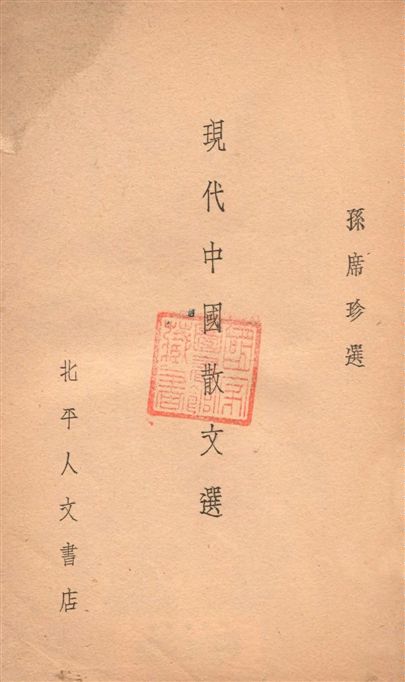 孫席珍選
現代中國散文選
北平人文書店